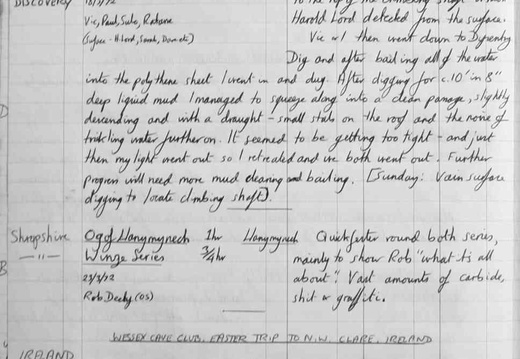 DISCOVERY
Vic, Paul, Sule,
Harold Lord detected from the surface.
Vic & I then went down to Dysentry
Dig and after bailing all of the water
into the polythene sheet I went in and dug. After digging for c.10' in 8"
deep liquid mud I managed to squeeze along into a clean passage, slightly
descending and with a draught - small stals on the roof and the noise of
trickling water further on. It seemed to be getting too tight - and just
then my light went out so I retreated and we both went out. Further
progress will need more mud clearing and bailing. [Sunday: Vain surface
digging to locate climbing shaft].
Shropshire Ogof Llanymynech 1hr Llanymynech Quick foster round both series,
—"— Winze Series ¾hr mainly to show Rob 'what it's all
23/3/72 about'. Vast amounts of carbide,
Rob Decky (OS) shit & graffiti.
WESSEX CAVE CLUB. EASTER TRIP TO N.W. CLARE, IRELAND
IRELAND